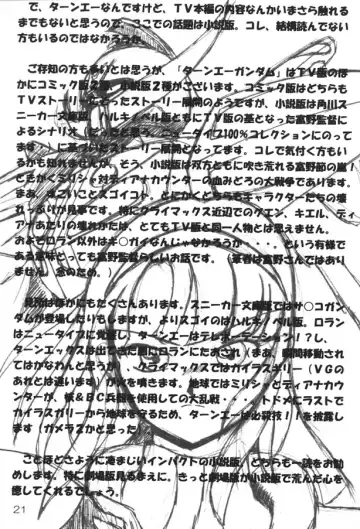 で、ターンエーなんですけど、TV本編の内容なんかいまさら触れる
までもないと思うので、ここでの話題は小説版。コレ、結構読んでない
方もいるのではなかろうか。
ご存知の方も多いとは思うが、「ターンエーガンダム」はTV版のほ
かにコミック版2種、小説版2種がございます。コミック版はどちらも
TVストーリーにそったストーリー展開のようですが、小説版は角川ス
ニーカー文庫版、ハルキノベル版ともにTV版の基となった富野監督に
よるシナリオ(だったと思う。ニュータイプ100%コレクションにのって
ます)に基づいたストーリー展開となってます。コレで気付く方もい
るかも知れませんが、そう、小説版は双方ともに吹き荒れる富野節の嵐!
とにかくミリシャ対ディアナカウンターの血みどろの大戦争であります。
まあ、すごいことスゴイコト。とにかくどちらもキャラクターたちの壊
れっぷりが見事です。特にクライマックス近辺でのグエン、キエル、ディ
アナあたりの壊れかたは、とてもTV版と同一人物とは思えません。
およそロラン以外はキ○ガイなんじゃなかろうか・・・・、という有様で
ある意味とっても富野監督らしいお話です。(筆者は富野さんではあり
ません。念のため。)
見所はほかにもたくさんあります。スニーカー文庫版ではサ○コガン
ダムが登場したりもしますが、よりスゴイのはハルキノベル版。ロラン
はニュータイプに覚醒し、ターンエーはテレポーテーション!?し、
ターンエックスは出てきた直にロランにたおされ(まあ、瞬間移動され
てはかなわんと思うが)、クライマックスではカイラスギリー(VGの
あれとは違います)が火を噴きます。地球ではミリシャとディアナカウ
ンターが、核&BC兵器を使用しての大乱戦・・・・、トドメにラストで
カイラスギリーから地球を守るため、ターンエーは必殺技!!を披露し
ます(ガメラ2かと思った)。
ことほどさように凄まじいインパクトの小説版、どちらも一読をお勧
めします。特に劇場版見るまえに。きっと劇場版が小説版で荒んだ心を
癒してくれるでしょう。
21